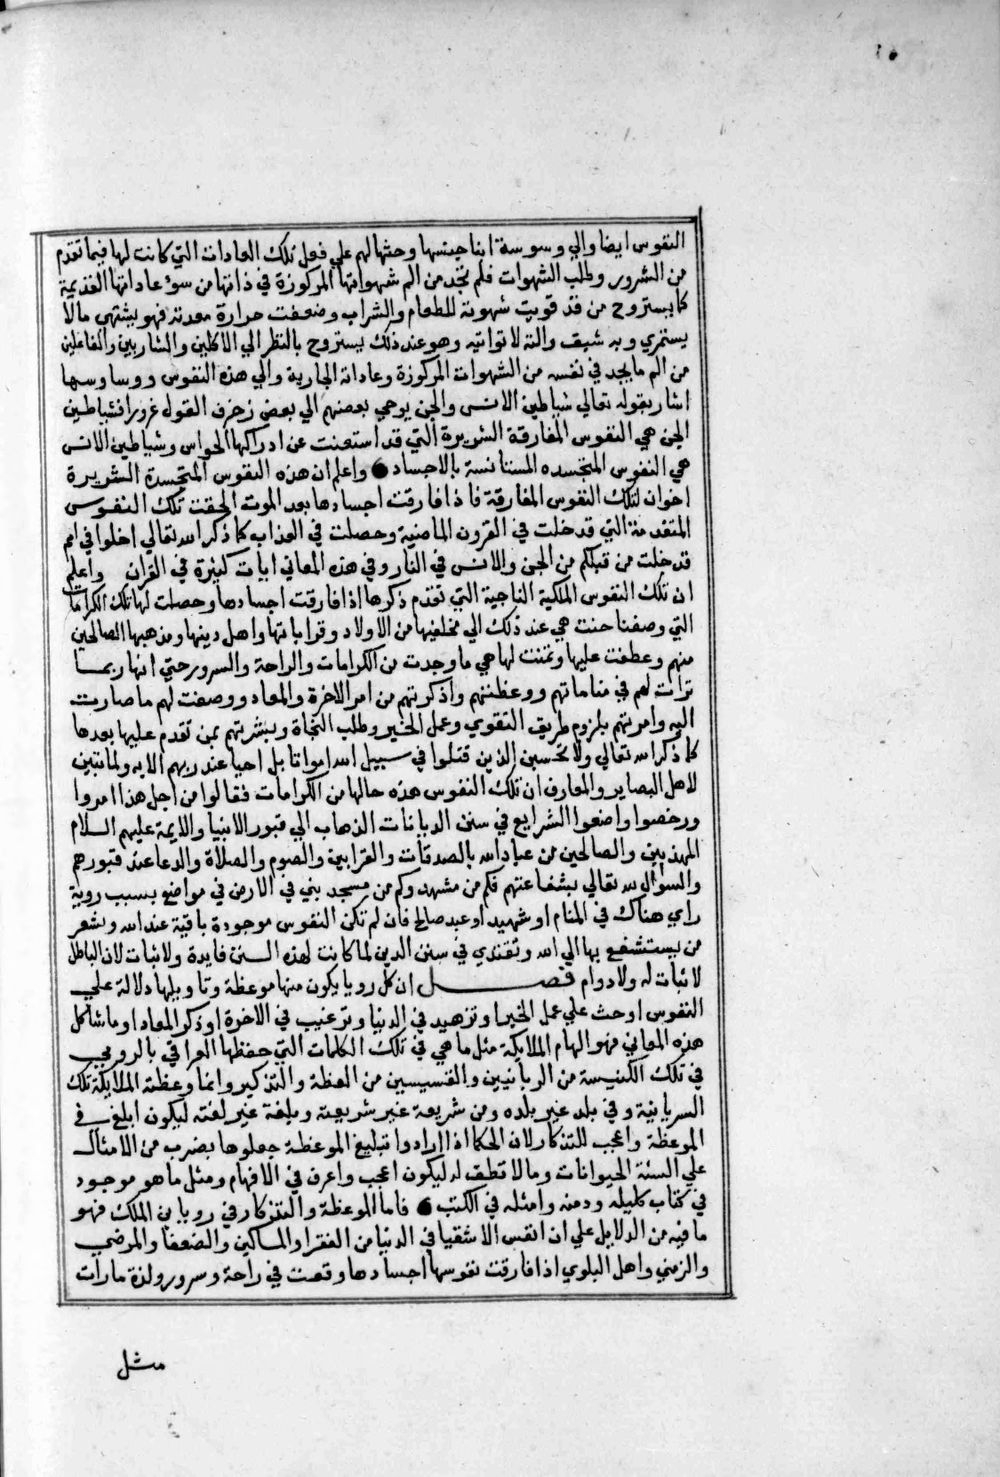 ١٥
النفوس ايضا والي وسوسة ابنا جنسها وحثها لهم علي فعل تلك العادات التي كانت لها فيما تقدم
من الشرور وطلب الشهوات فلم تجد من الم شهواتها المركوزة في ذاتها من سوء عاداتها القديمة
كما يستروح من قد قويت شهوته للطعام والشراب وضعفت حرارة معدته فهو يشتهي ما لا
يستمري وبه شبق والته لا تواتيه وهو عند ذلك يستروح بالنظر الي الاكلين والشاربين والفاعلين
من الم ما يجد في نفسه من الشهوات المركوزة وعاداته الجارية والي هذه النفوس ووساوسها
اشار بقوله تعالي شياطين الانس والجن يوحي بعضهم الي بعض زخرف القول غرورا فشياطين
الجن هي النفوس المفارقة الشريرة التي قد استعنت عن ادراكها الحواس وشياطين الانس
هي النفوس المتجسده المستانسة بالاجساد واعلم ان هذه النفوس المتجسدة الشريرة
اخوان لتلك النفوس المفارقة فاذا فارقت اجسادها بعد الموت الحقت تلك النفوس
المتقدمة التي قد خلت في القرون الماضية وحصلت في العذاب كما ذكر الله تعالي ادخلوا في امم
قد خلت من قبلكم من الجن والانس في النار وفي هذه المعاني ايات كثيرة في القران واعلم
ان تلك النفوس الملكية الناجية التي تقدم ذكرها اذا فارقت اجسادها وحصلت لها تلك الكرامات
التي وصفنا حنت هي عند ذلك الي مخلفيها من الاولاد وقراباتها واهل دينها ومذهبها الصالحين
منهم وعطفت عليها وتمنت لها هي ما وجدت من الكرامات والراحة والسرور حتي انها ربما
ترات لهم في مناماتهم ووعظتهم واذكرتهم من امر الاخرة والمعاد ووصفت لهم ما صارت
اليه وامرتهم بلزوم طريق التقوي وعمل الخير وطلب النجاة وبشرتهم بمن تقدم عليها بعدها
كما ذكر الله تعالي ولا تحسبن الذين قتلوا في سبيل الله امواتا بل احيا عند ربهم الايه ولما تبين
لاهل البصاير والمعارف ان تلك النفوس هذه حالها من الكرامات فقالوا من اجل هذا امروا
ورخصوا واضعوا الشرايع في سنن الديانات الذهاب الي قبور الانبيا والايمة عليهم السلام
المهذبين والصالحين من عباد الله بالصدقات والقرابين والصوم والصلاة والدعا عند قبورهم
والسوال لله تعالي بشفاعتهم فكم من مشهد وكم من مسجد بني في الارض في مواضع بسبب روية
راي هناك في المنام او شهيد او عبد صالح فان لم تكن النفوس موجودة باقية عند الله وتشعر
من يستشفع بها الي الله وتقتدي في سنن الدين لما كانت لهذه السنن فايدة ولا ثبات لان الباطل
لا ثبات له ولا دوام فصل ان كل رويا يكون منها موعظة وتاويلها دلالة علي
النفوس او حث علي عمل الخير او تزهيد في الدنيا وترغيب في الاخرة او ذكر المعاد او ما شاكل
هذه المعاني فهو الهام الملايكة مثل ما هي في تلك الكلمات التي حفظها العراقي بالرومي
في تلك الكنيسة من الربانيين والقسيسين من العظة والتذكير وانما وعظته الملايكة تلك
السريانية وفي بلد غير بلده ومن شريعة غير شريعته وبلغة غير لغته ليكون ابلغ في
الموعظة واعجب للتذكار لان الحكما اذا ارادوا تبليغ الموعظة جعلوها بضرب من الامثال
علي السنة الحيوانات وما لا نطق له ليكون اعجب واعرف في الافهام ومثل ما هو موجود
في كتاب كليله ودمنه وامثله في الكتب فاما الموعظة والتذكار في رويا بن الملك فهو
ما فيه من الدلايل علي ان انفس الاشقيا في الدنيا من الفقرا والمساكين والضعفا والمرضي
والزمني واهل البلوي اذا فارقت نفوسها اجسادها وقعت في راحة وسرور ولذة ما رات
مثل